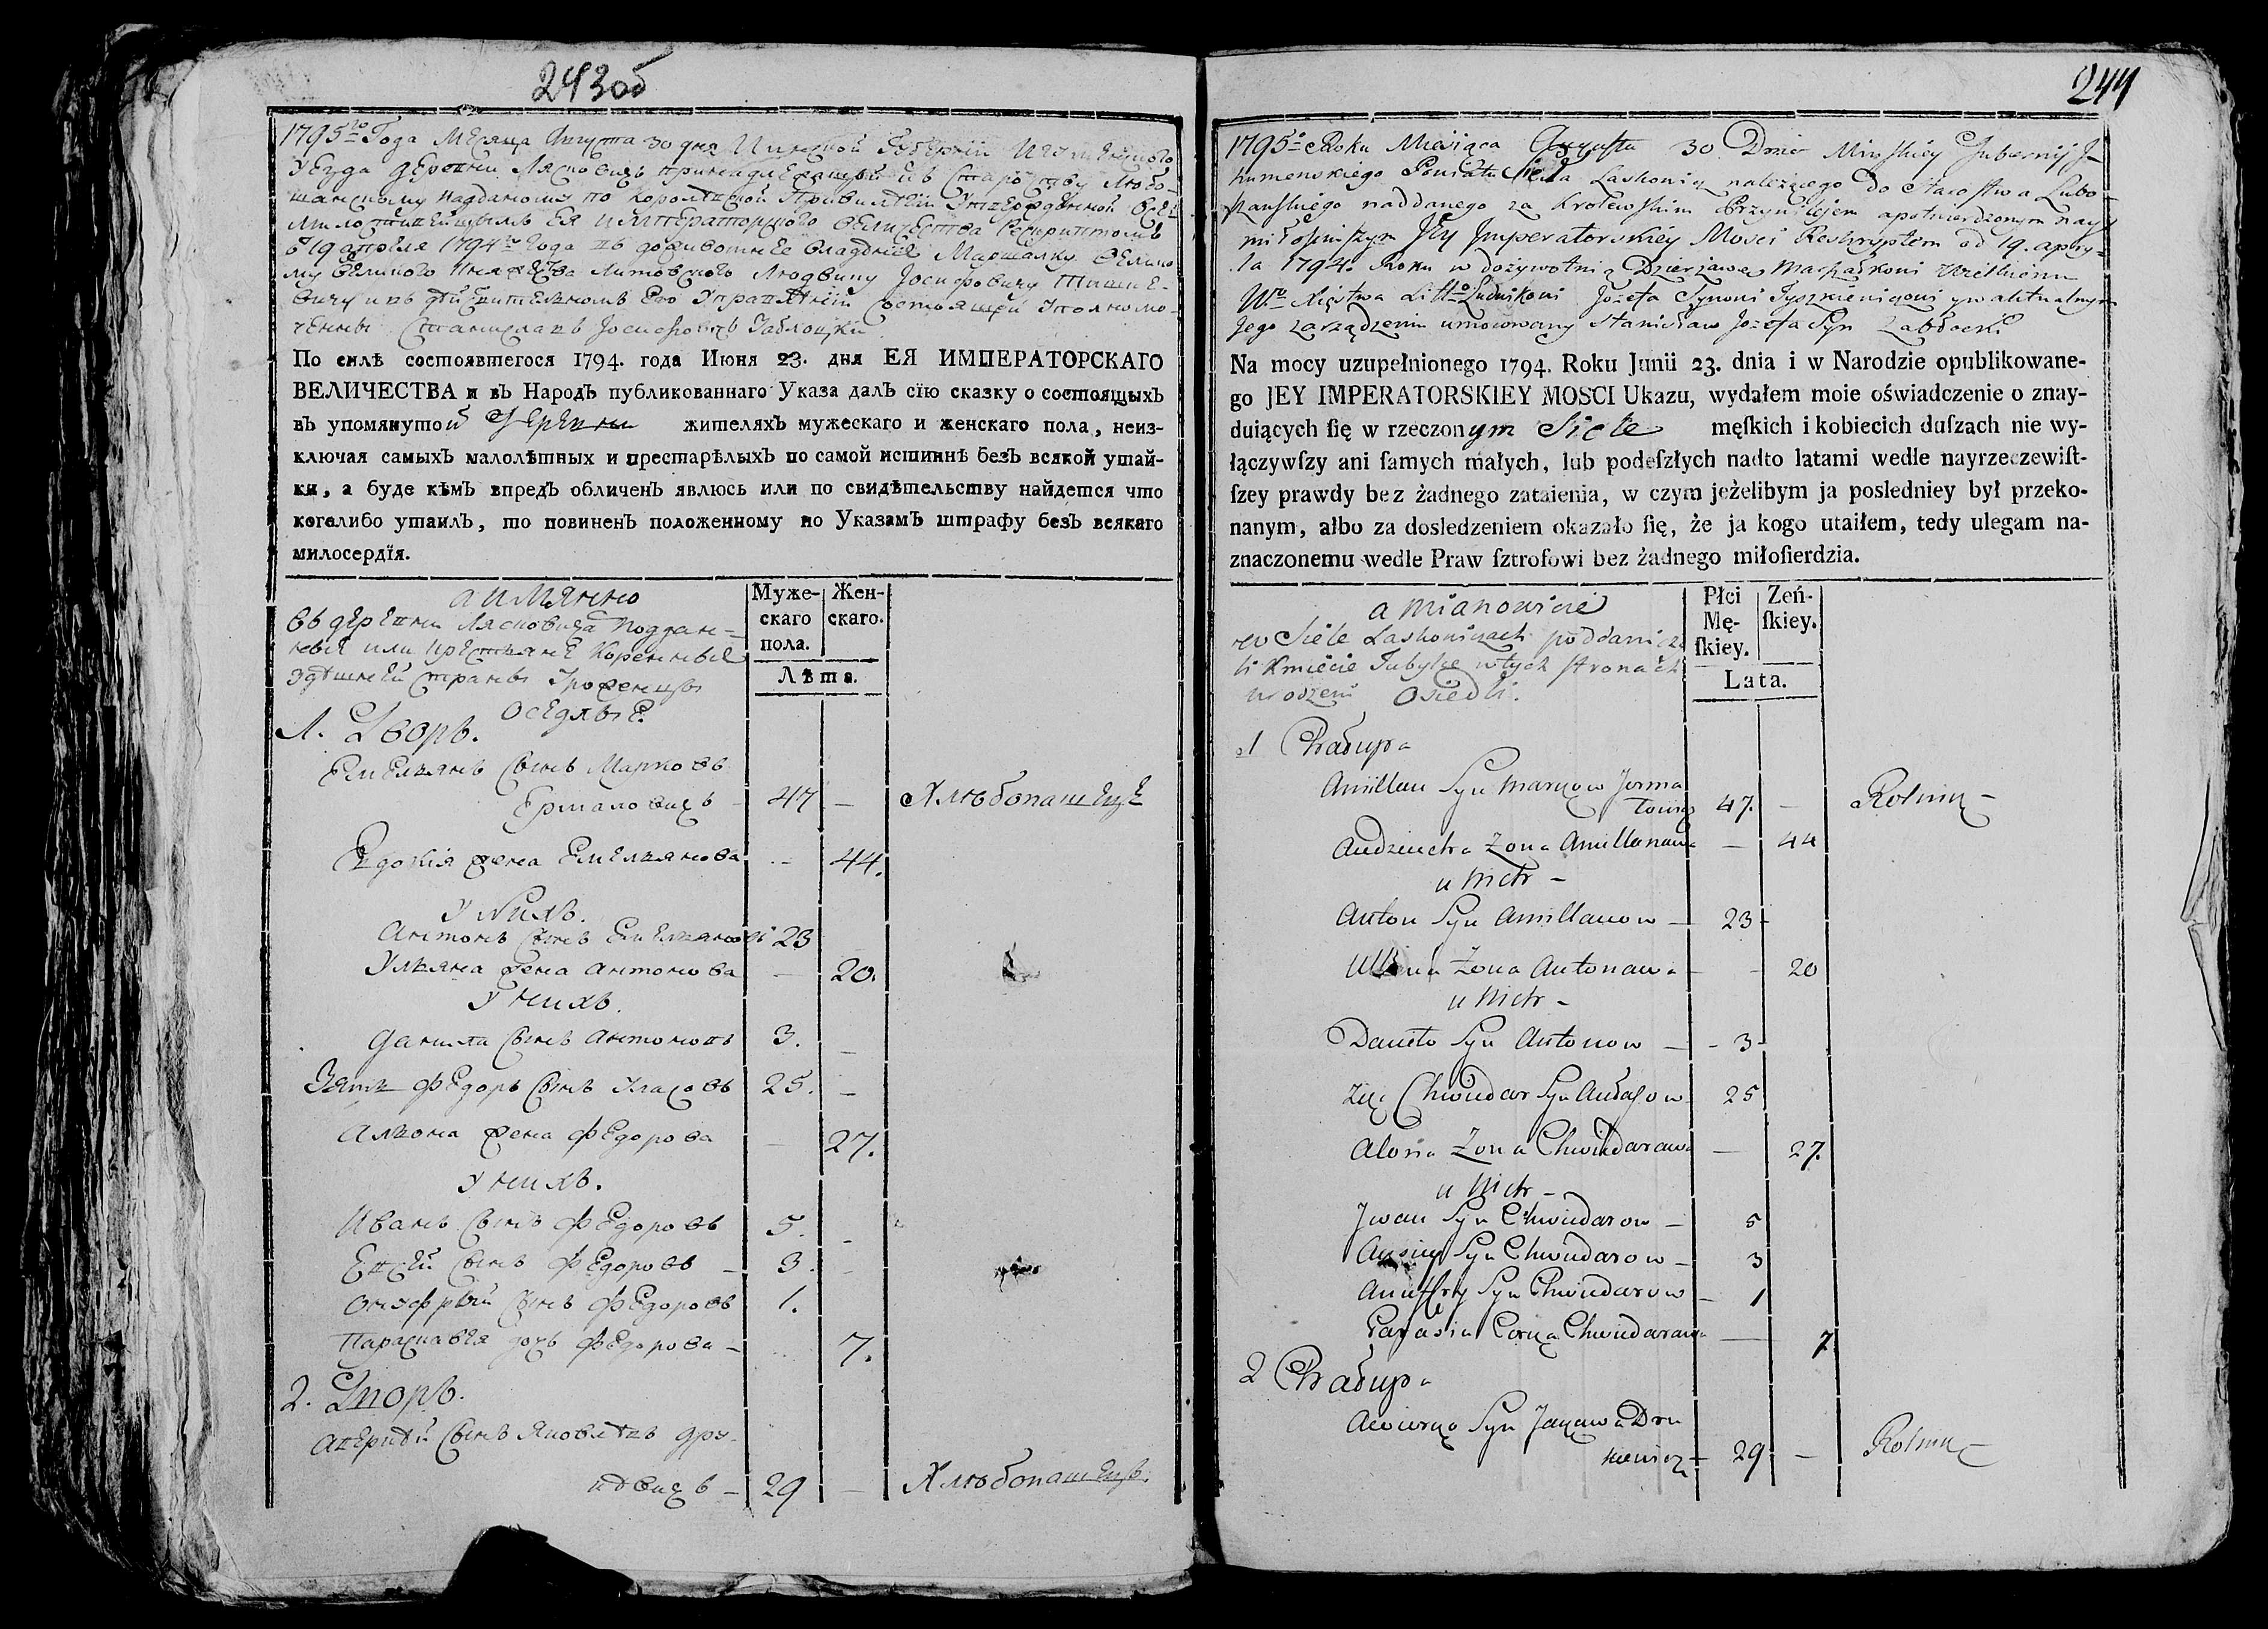 243об
1795го Года Месяца Августа 30 дня Минской Губернии Игуменского
уезда деревни Лясковичъ принадлежащей къ Староству Любо-
шанскому наданому по Королевской Привилегии Утвержденной Все
Милостивейшымъ Ея Императорского Величества Рескриптомъ
19 апреля 1794го Года въ доживотнее владние Маршалку Велико
му Великого Княжества Литовского Людвику Иосифовичу Тышке-
вичу и въ действительномъ Его Управлении состоящей Уполномо-
ченны Станиславъ Иосифовичъ Заблоцки
По силѣ состоявшегося 1794. года Июня 23. дня ЕЯ ИМПЕРАТОРСКАГО
ВЕЛИЧЕСТВА и въ Народъ публикованнаго Указа далъ сїю сказку о состоящыхъ
въ упомянутой Деревни жителяхъ мужескаго и женскаго пола, неиз-
ключая самыхъ малолѣтныхъ и престарѣлыхъ по самой истиннѣ безъ всякой утай-
ки, а буде кѣмъ впредъ обличенъ явлюсь или по свидѣтельству найдется что
кого либо утаилъ, то повиненъ положенному по Указамъ штрафу безъ всякаго
милосердїя.
а имянно
въ деревни Лясковичахъ Поддан-
ные или крестьяне Коренные
здѣшней страны Уроженцы
оседлые.
Муже-скаго пола.
Жен-скаго.
Лѣта.
1. Дворъ.
Емельянъ сынъ Марковъ
Ермаловичъ - 47 — Хлѣбопашецъ
Евдокія жена Емельянова — 44.
У Нихъ.
Антонъ сынъ Емельяновъ 23
Ульяна жена Антонова — 20.
У нихъ.
Данила сынъ Антоновъ 3. —
Зять Федоръ сынъ Власовъ 25. —
Альона жена Федорова — 27.
У нихъ.
Иванъ сынъ Федоровъ 5. —
Евсей сынъ Федоровъ — 3. —
Онуфрый сынъ Федоровъ 1.
Параскавея дочь Федорова — 7.
2. Дворъ.
Аверкѣй сынъ Яковлевъ дру-
кевичъ — 29 — Хлѣбопашецъ.
244
1795o Roku Miesiąca Augusta 30 Dnia Minskiey Gubernij I-
humenskiego Powiatu Sieła Laskowicz należącego do Starostwa Lubo
szanskiego naddanego za Krolewskim Przywilejem apotwierdzonym nay
miłosciwszym Jey Imperatorskiey Mosci Reskryptem od 19. apry-
la 1794. Roku w dożywotnią Dzierżawę Marszałkowi Wielkiemu
Wo Xięstwa Litto Ludwikowi Józefa Synowi Tyszkiewiczowi y w aktualnym
Jego zarządzeniu umocowany Stanisław Jozefa Syn Zabłocki
Na mocy uzupełnionego 1794. Roku Junii 23. dnia i w Narodzie opublikowane-
go JEY IMPERATORSKIEY MOSCI Ukazu, wydałem moie oświadczenie o znay-
duiących ſię w rzeczonym Siele męſkich i kobiecich duſzach nie wy-
łączywſzy ani ſamych małych, lub podeſzłych nadto latami wedle nayrzeczewiſt-
ſzey prawdy bez żadnego zataienia, w czym jeżelibym ja posledniey był przeko-
nanym, albo za dosledzeniem okazało ſię, że ja kogo utaiłem, tedy ulegam na-
znaczonemu wedle Praw ſztrofowi bez żadnego miłoſierdzia.
a mianowicie
we Siele Laskowiczach poddani cz
li Kmiecie Tubylce wtych stronach
urodzeni Osiedli.
Płci Mę-ſkiey.
Zeń-ſkiey.
Lata.
1 Chałupa
Amillan Syn Marcow Jerma
łowicz 47. — Rolnik
Audziucha Zona Amillanawa — 44
u Nich —
Anton Syn Amillanow — 23
Ullana Zona Antonawa — 20
u Nich —
Daniło Syn Antonow — 3
Zięć Chwiedar Syn Aułasow 25
Alona Zona Chwiedarawa — 27.
u Nich —
Jwan Syn Chwiedarow — 5
Ausiey Syn Chwiedarow — 3
Anuffry Syn Chwiedarow — 1
Parasia Corka Chwiedarawa — 7
2 Chałupa
Awierko Syn Jakawa Dru
kiewicz 29 — Rolnik